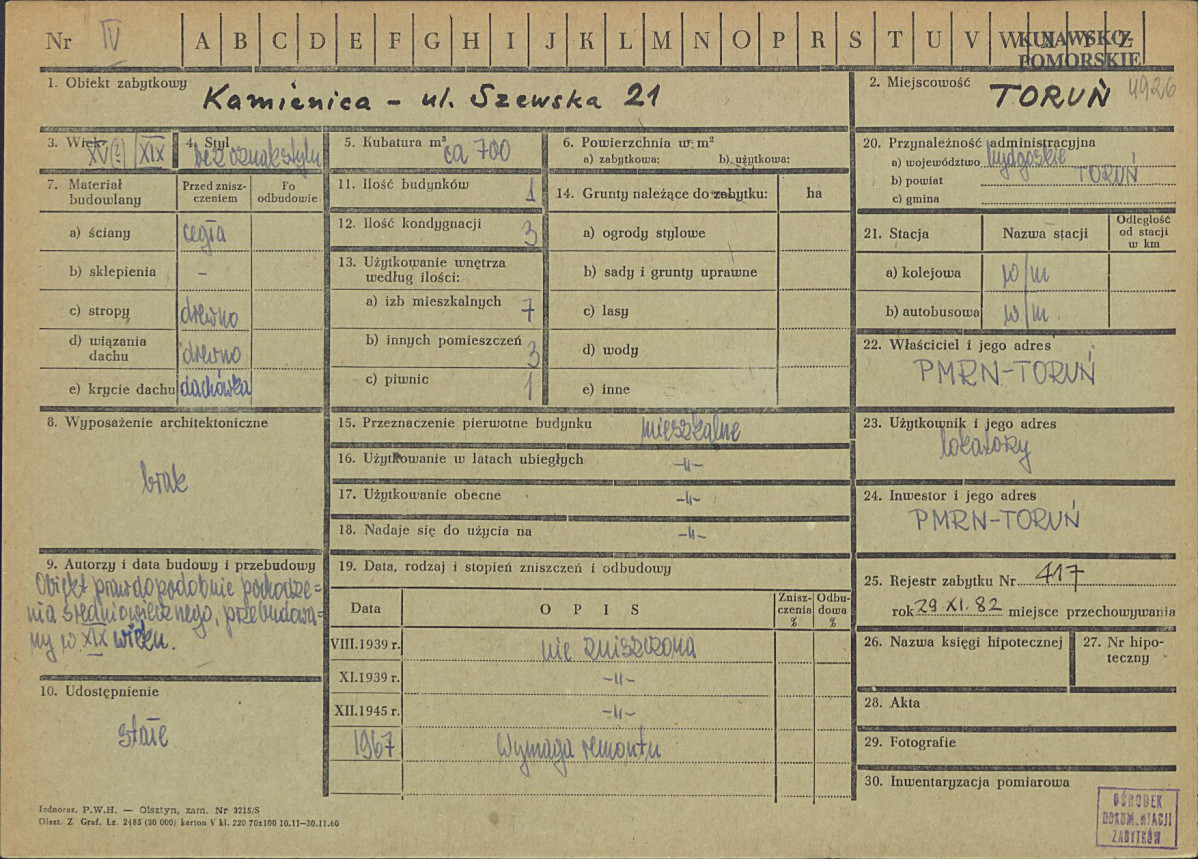 Nr IV A B C D E F G H I J K L M N O P R S T U V W X Y Z
KUJAWSKO-
POMORSKIE
1. Obiekt zabytkowy
Kamienica - ul. Szewska 21
2. Miejscowość
TORUŃ 4926
3. Wiek
XV(?) XIX
4. Styl
bez oznak stylu
5. Kubatura m³
ca 700
6. Powierzchnia w m²
a) zabytkowa: b) użytkowa:
7. Materiał budowlany
Przed zniszczeniem
Po odbudowie
a) ściany cegła
b) sklepienia –
c) stropy drewno
d) wiązania dachu drewno
e) krycie dachu dachówka
8. Wyposażenie architektoniczne
brak
9. Autorzy i data budowy i przebudowy
Obiekt prawdopodobnie pochodze-
nia średniowiecznego, przebudowa-
ny w XIX wieku.
10. Udostępnienie
stałe
11. Ilość budynków 1
12. Ilość kondygnacji 3
13. Użytkowanie wnętrza
według ilości:
a) izb mieszkalnych 7
b) innych pomieszczeń 3
c) piwnic 1
14. Grunty należące do zabytku: ha
a) ogrody stylowe
b) sady i grunty uprawne
c) lasy
d) wody
e) inne
15. Przeznaczenie pierwotne budynku mieszkalne
16. Użytkowanie w latach ubiegłych -〃-
17. Użytkowanie obecne -〃-
18. Nadaje się do użycia na -〃-
19. Data, rodzaj i stopień zniszczeń i odbudowy
Data OPIS Zniszczenia % Odbudowa %
VIII.1939 r. nie zniszczona
XI.1939 r. -〃-
XII.1945 r. -〃-
1967 Wymaga remontu
20. Przynależność administracyjna
a) województwo bydgoskie
b) powiat TORUŃ
c) gmina
21. Stacja Nazwa stacji Odległość od stacji w km
a) kolejowa w/m
b) autobusowa w/m
22. Właściciel i jego adres
PMRN-TORUŃ
23. Użytkownik i jego adres
lokatorzy
24. Inwestor i jego adres
PMRN-TORUŃ
25. Rejestr zabytku Nr 417
rok 29 XI. 82 miejsce przechowywania
26. Nazwa księgi hipotecznej
27. Nr hipo-
teczny
28. Akta
29. Fotografie
30. Inwentaryzacja pomiarowa
Jednoraz. P.W.H. — Olsztyn, zam. Nr 3215/S
Olszt. Z. Graf. Lz. 2485 (30 000) karton V kl. 220 70x100 10.11—30.11.60
OŚRODEK
DOKUMENTACJI
ZABYTKÓW